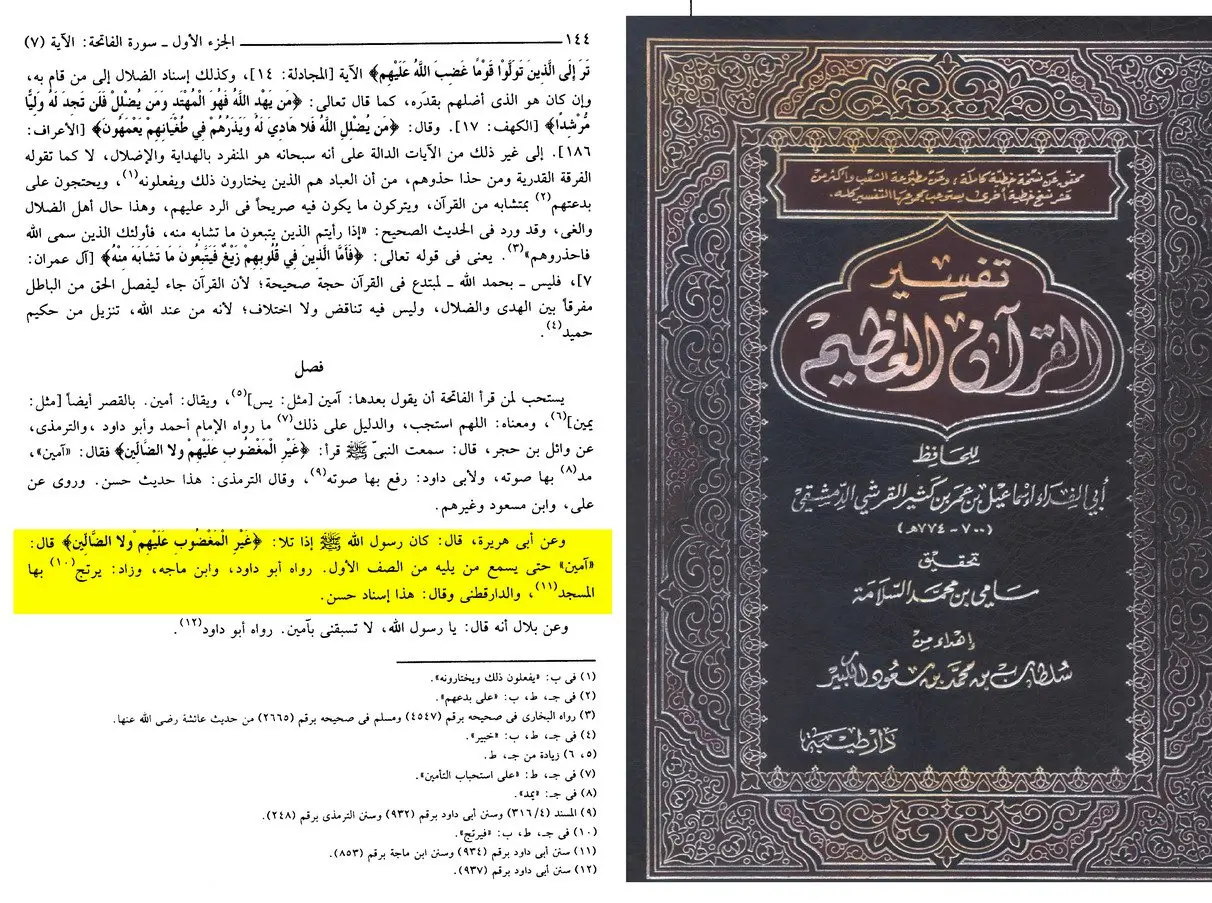 ١٤٤ ــــــــــــــــــــــــــــــــــــــــــــــــــــ الجزء الأول ـ سورة الفاتحة: الآية (٧)
تَرَ إِلَى الَّذِينَ تَوَلَّوْا قَوْمًا غَضِبَ اللَّهُ عَلَيْهِم﴾ الآية [المجادلة: ١٤]، وكذلك إسناد الضلال إلى من قام به،
وإن كان هو الذى أضلهم بقدَره، كما قال تعالى: ﴿مَن يَهْدِ اللَّهُ فَهُوَ الْمُهْتَدِ وَمَن يُضْلِلْ فَلَن تَجِدَ لَهُ وَلِيًّا
مُّرْشِدًا﴾ [الكهف: ١٧]. وقال: ﴿مَن يُضْلِلِ اللَّهُ فَلا هَادِيَ لَهُ وَيَذَرُهُمْ فِي طُغْيَانِهِمْ يَعْمَهُونَ﴾ [الأعراف:
١٨٦]. إلى غير ذلك من الآيات الدالة على أنه سبحانه هو المنفرد بالهداية والإضلال، لا كما تقوله
الفرقة القدرية ومن حذا حذوهم، من أن العباد هم الذين يختارون ذلك ويفعلونه(١)، ويحتجون على
بدعتهم(٢) بمتشابه من القرآن، ويتركون ما يكون فيه صريحاً فى الرد عليهم، وهذا حال أهل الضلال
والغى، وقد ورد فى الحديث الصحيح: «إذا رأيتم الذين يتبعون ما تشابه منه، فأولئك الذين سمى الله
فاحذروهم»(٣). يعنى فى قوله تعالى: ﴿فَأَمَّا الَّذِينَ فِي قُلُوبِهِمْ زَيْغٌ فَيَتَّبِعُونَ مَا تَشَابَهَ مِنْهُ﴾ [آل عمران:
٧]، فليس ـ بحمد الله ـ لمبتدع فى القرآن حجة صحيحة؛ لأن القرآن جاء ليفصل الحق من الباطل
مفرقاً بين الهدى والضلال، وليس فيه تناقض ولا اختلاف؛ لأنه من عند الله، تنزيل من حكيم
حميد(٤).
فصل
يستحب لمن قرأ الفاتحة أن يقول بعدها: آمين [مثل: يس](٥)، ويقال: أمين. بالقصر أيضاً [مثل:
يمين](٦)، ومعناه: اللهم استجب، والدليل على ذلك(٧) ما رواه الإمام أحمد وأبو داود ،والترمذى،
عن وائل بن حجر، قال: سمعت النبىّ ﷺ قرأ: ﴿غَيْرِ الْمَغْضُوبِ عَلَيْهِمْ ولا الضَّالِّينَ﴾ فقال: «آمين»،
مد(٨) بها صوته، ولأبى داود: رفع بها صوته(٩)، وقال الترمذى: هذا حديث حسن. وروى عن
على، وابن مسعود وغيرهم.
وعن أبى هريرة، قال: كان رسول الله ﷺ إذا تلا: ﴿غَيْرِ الْمَغْضُوبِ عَلَيْهِمْ ولا الضَّالِّين﴾ قال:
«آمين» حتى يسمع من يليه من الصف الأول. رواه أبو داود، وابن ماجه، وزاد: يرتج(١٠) بها
المسجد(١١)، والدارقطنى وقال: هذا إسناد حسن.
وعن بلال أنه قال: يا رسول الله، لا تسبقنى بآمين. رواه أبو داود(١٢).
(١) فى ب: «يفعلون ذلك ويختارونه».
(٢) فى جـ، ط، ب: «على بدعهم».
(٣) رواه البخارى فى صحيحه برقم (٤٥٤٧) ومسلم فى صحيحه برقم (٢٦٦٥) من حديث عائشة رضى الله عنها.
(٤) فى جـ، ط، ب: «خبير».
(٥، ٦) زيادة من جـ، ط.
(٧) فى جـ، ط: «على استحباب التأمين».
(٨) فى جـ: «يمد».
(٩) المسند (٣١٦/٤) وسنن أبى داود برقم (٩٣٢) وسنن الترمذى برقم (٢٤٨).
(١٠) فى جـ، ط، ب: «فيرتج».
(١١) سنن أبى داود برقم (٩٣٤) وسنن ابن ماجة برقم (٨٥٣).
(١٢) سنن أبى داود برقم (٩٣٧).
محقق عن نسخة خطية كاملة، وعن مطبوعة الشعب وأكثر من
عشر نسخ خطية أخرى يستوعب مجموعها التفسير كله.
تفسير
القرآن العظيم
للحافظ
أبي الفداء إسماعيل بن عمر بن كثير القرشي الدمشقي
(٧٠٠ - ٧٧٤هـ)
تحقيق
سامي بن محمد السلامة
إهداء من
سلطان بن محمد بن سعود الكبير
دار طيبة